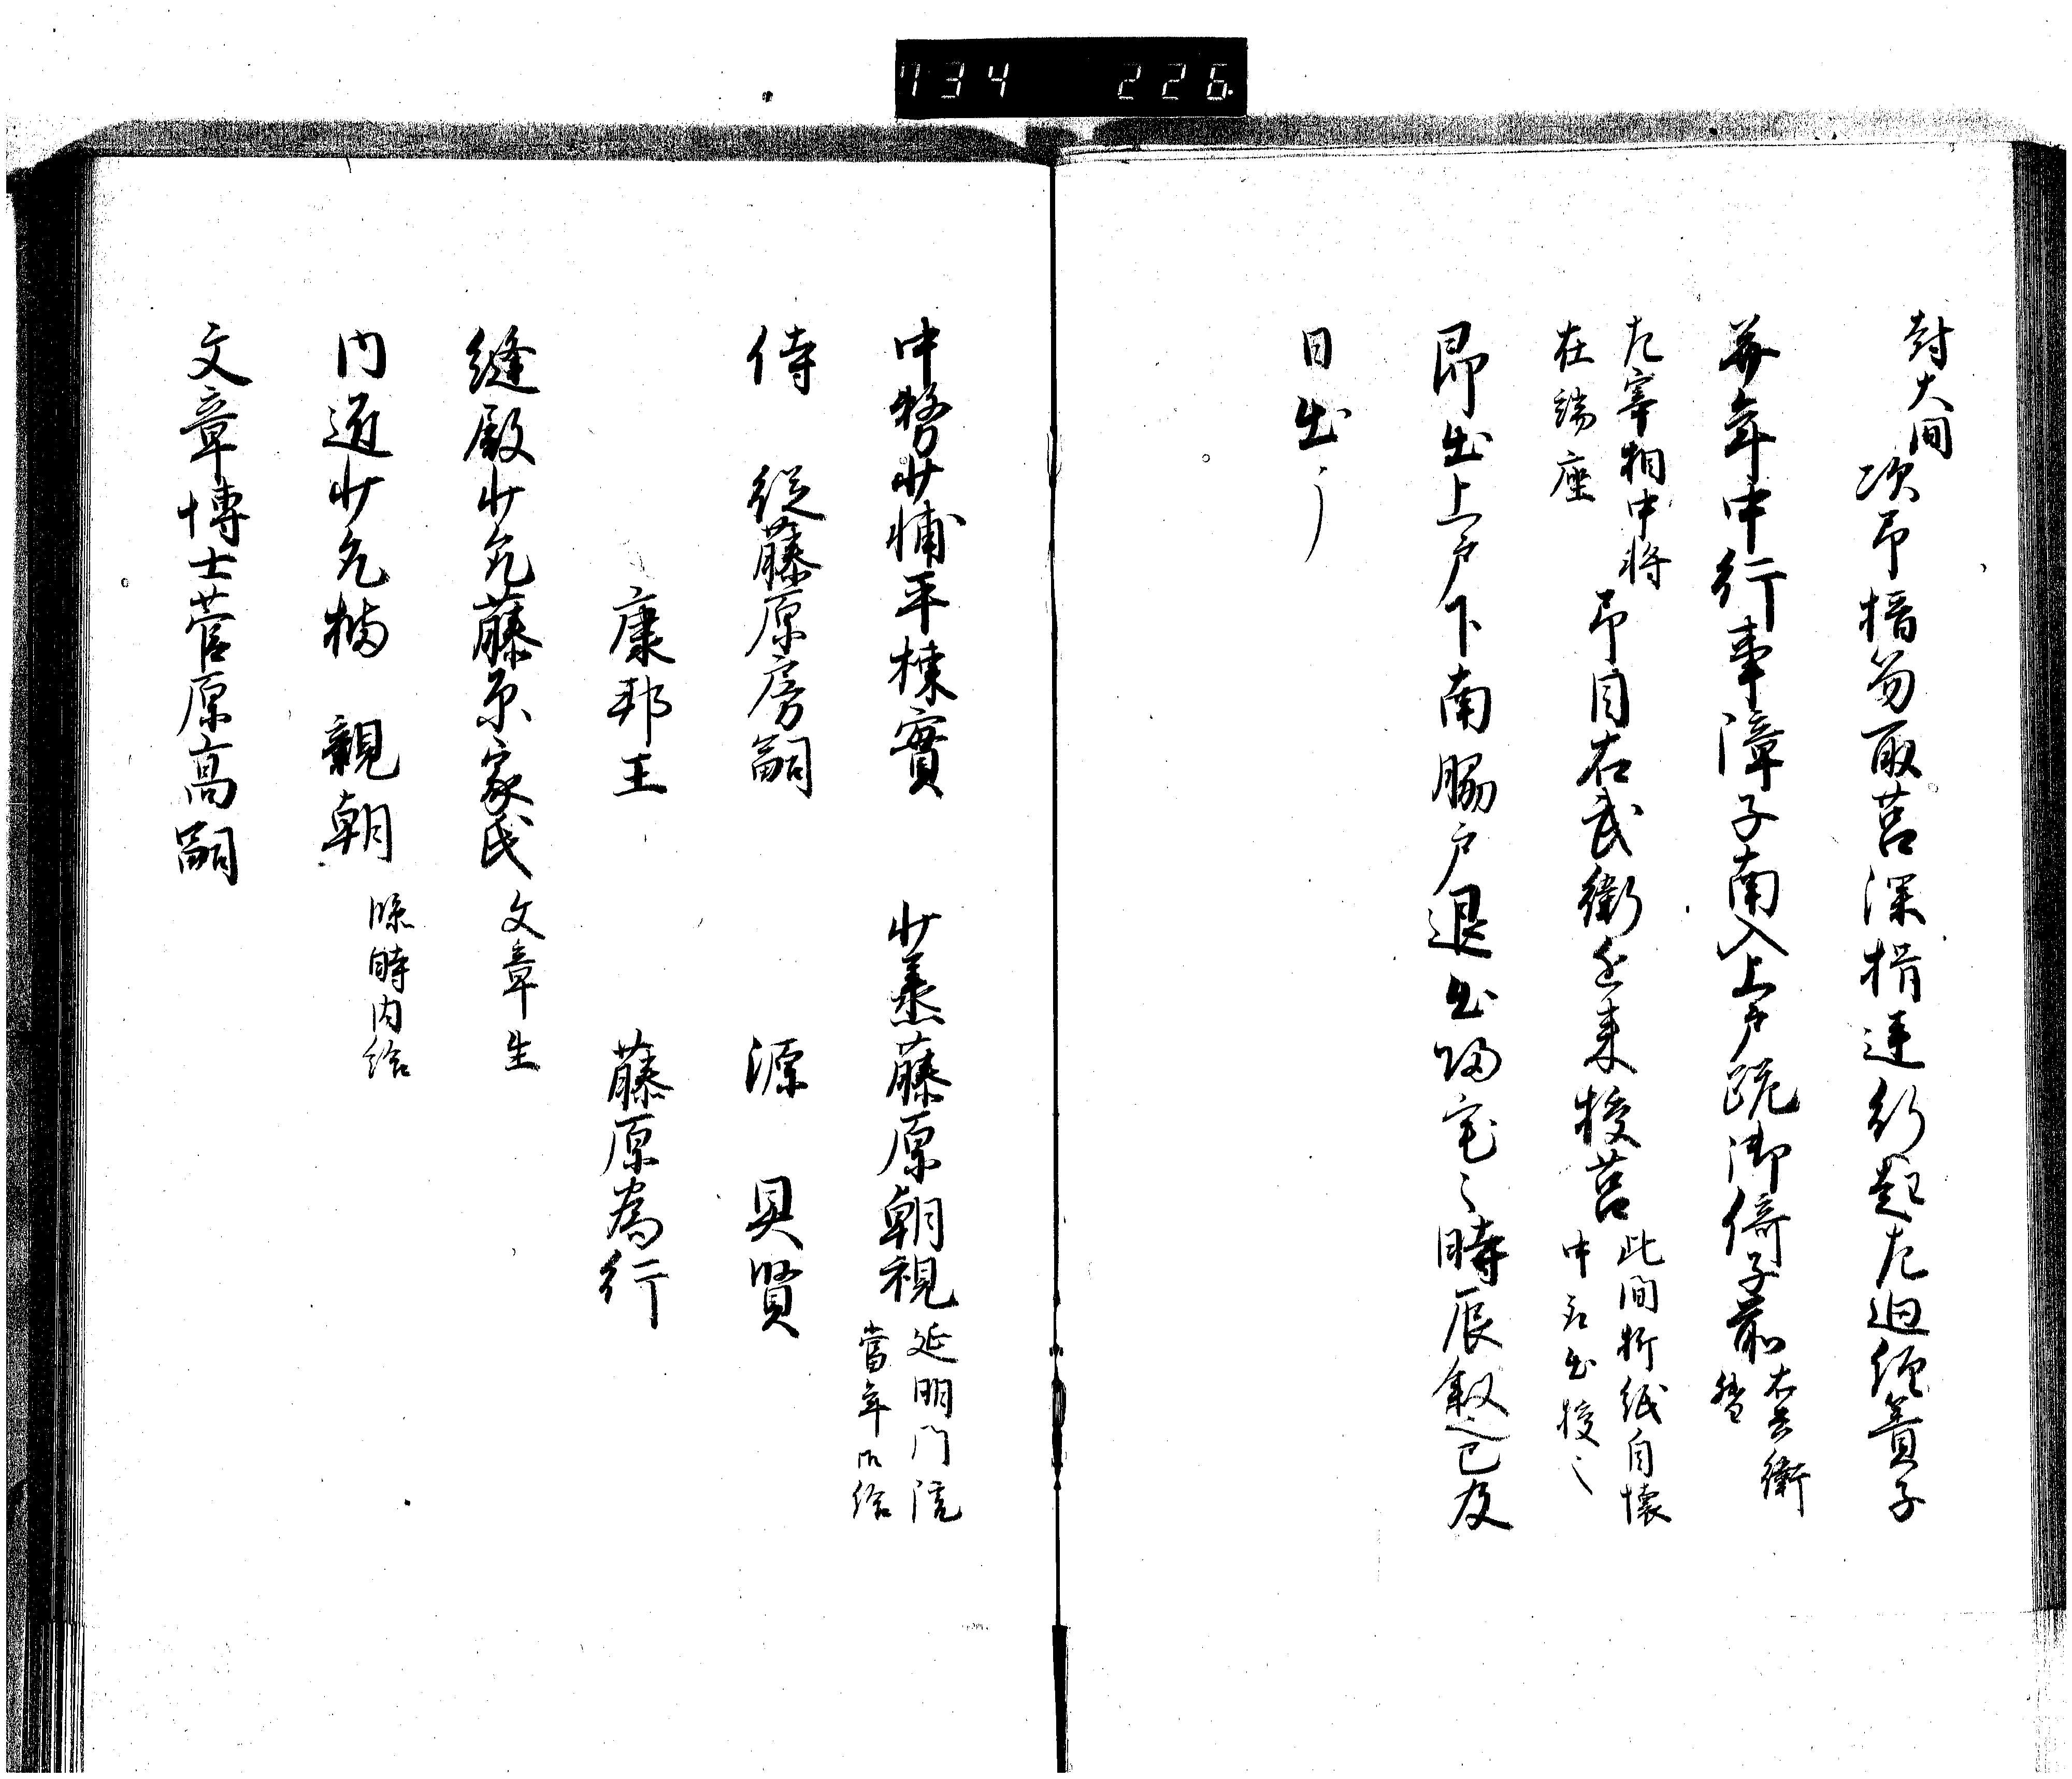 734 226
封大間
次予搢笏取莒深揖逆行起左廻経簀子
并年中行事障子南入上戸跪御倚子前 右兵衛
督
左宰相中将
在端座
予目右武衛進来授莒 此間折紙自懐
中取出授之
即出上戸下南腸戸退出帰宅之時辰剋已及
日出了
中務少輔平棟實 少丞藤原朝視 延明門院
當年御給
侍 従藤原房嗣 源 具賢
康邦王 藤原為行
縫殿少允藤原家氏 文章生
内匠少允橘 親朝 臨時内給
文章博士菅原高嗣